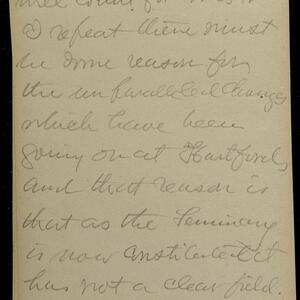 I repeat there must
be some reason for
the unparalleled changes
which have been
going on at Hartford,
and that reason is
that as the Seminary
is now constituted it
has not a clear field.